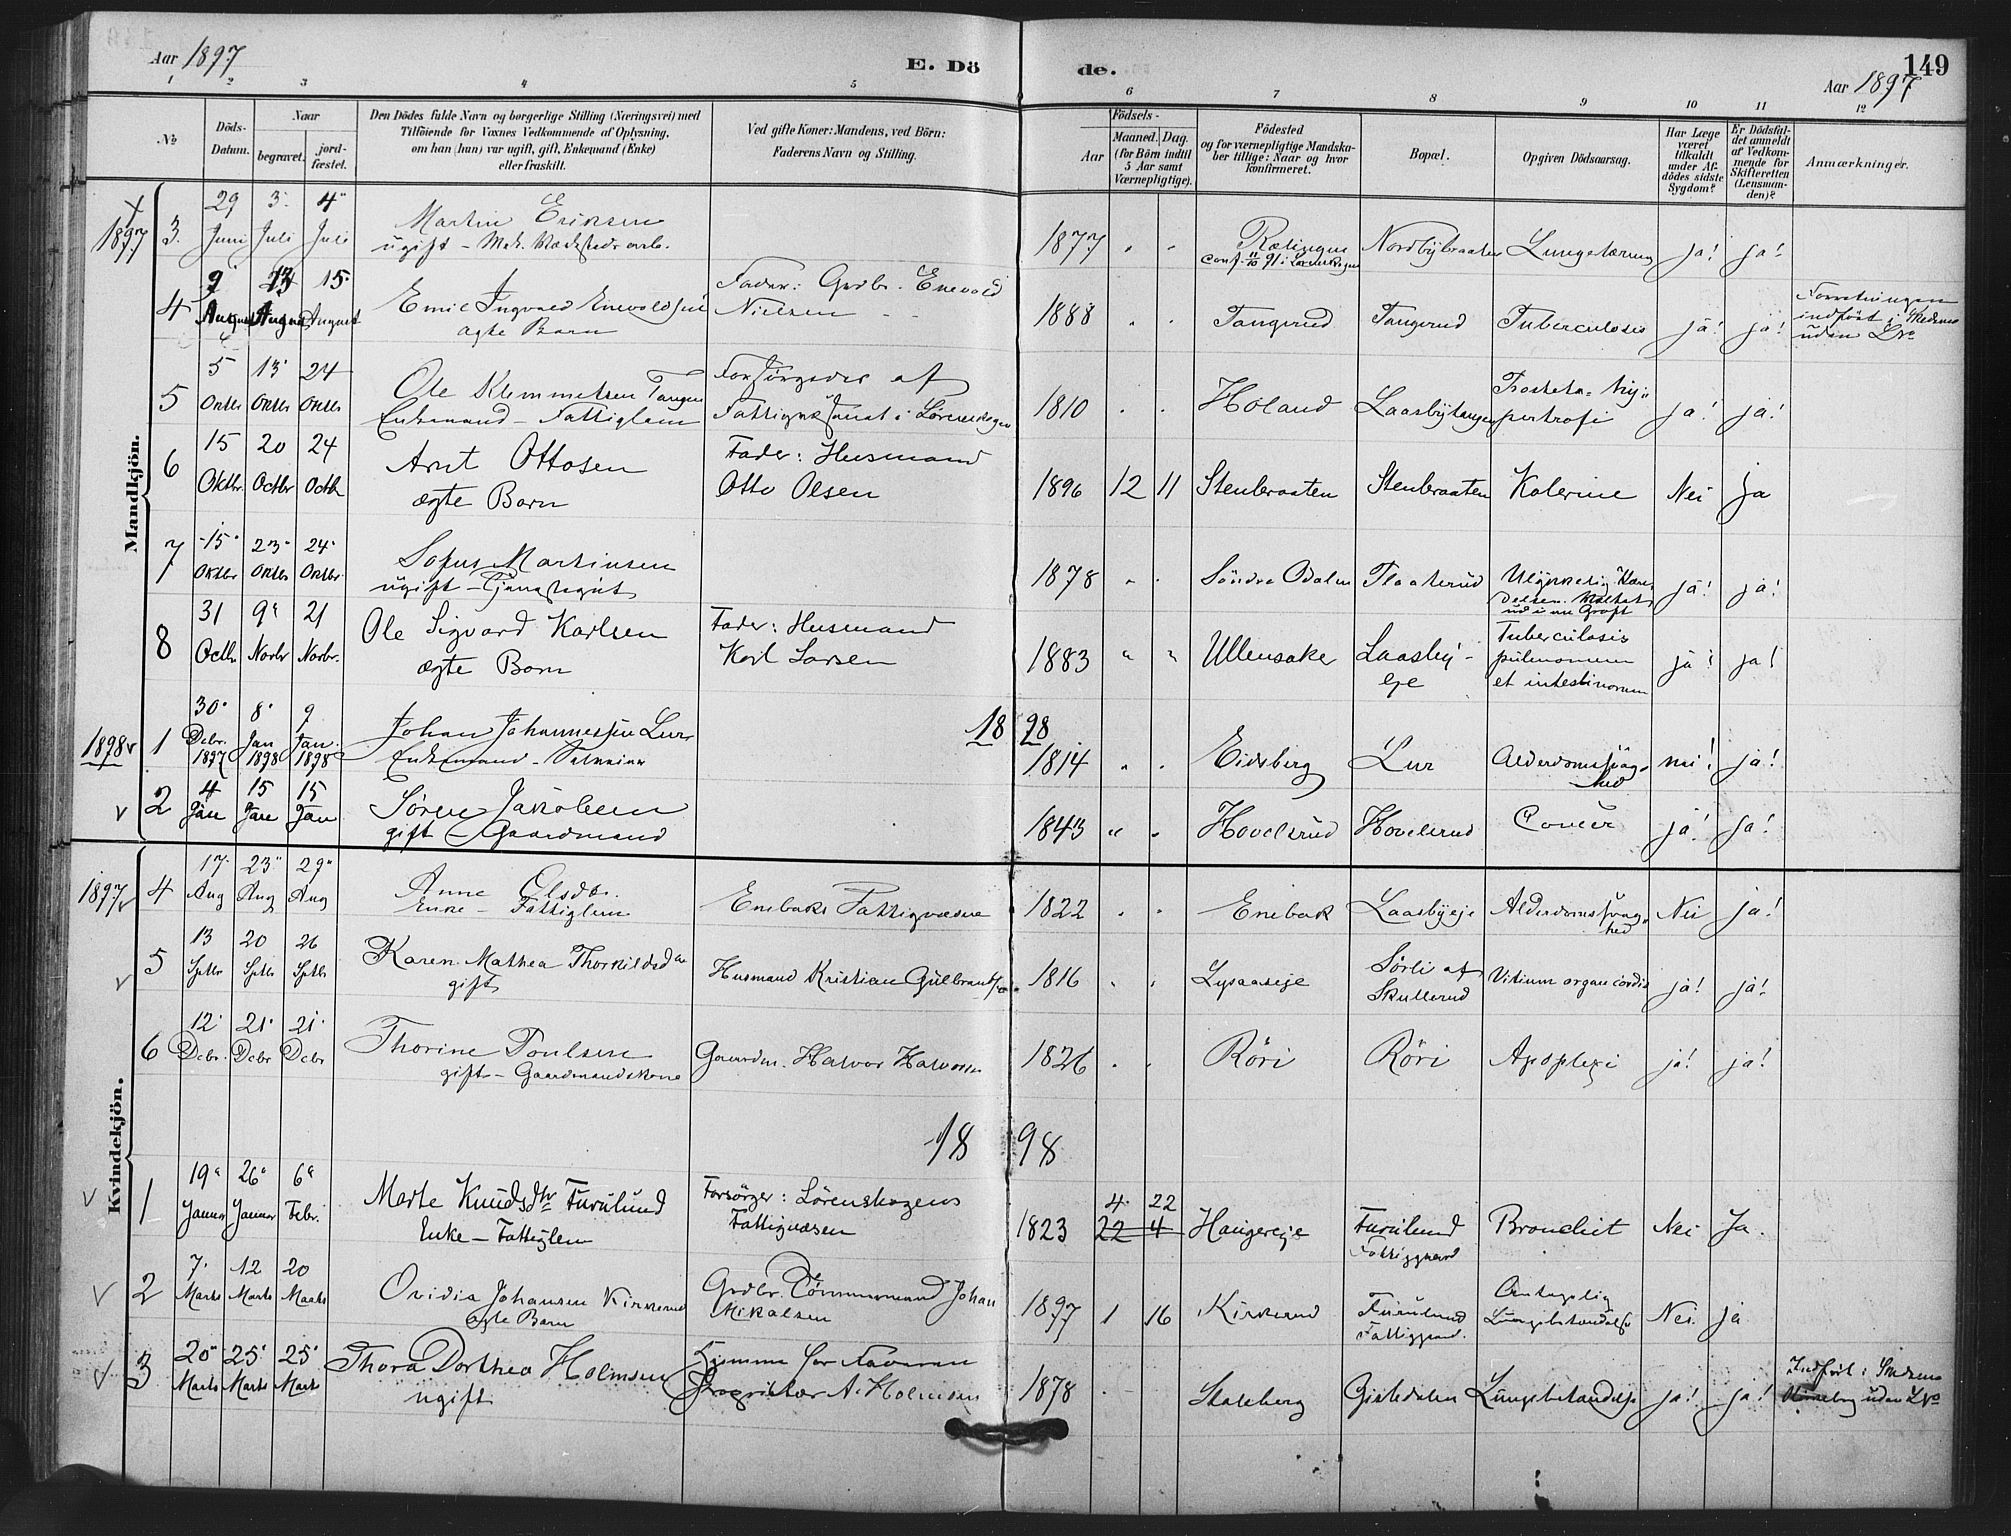 Aar 1897
E. Dö de.
149
Aar 1897
1 2 3 4 5 6 7 8 9 10 11 12
No
Döds-Datum.
Naar
begravet.
jord-fæstet.
Den Dödes fulde Navn og borgerlige Stilling (Næringsvei) med
Tilföiende for Voxnes Vedkommende af Oplysning,
om han (hun) var ugift, gift, Enkemand (Enke)
eller fraskilt.
Ved gifte Koner: Mandens, ved Börn:
Faderens Navn og Stilling.
Födsels-
Aar
Maaned. Dag.
(for Börn indtil
5 Aar samt
Værnepligtige).
Födested
og for værnepligtige Mandska-
ber tillige: Naar og hvor
konfirmeret.
Bopæl.
Opgiven Dödsaarsag.
Har Læge
været
tilkaldt
under Af-
dödes sidste
Sygdom?
Er Dödsfal-
det anmeldt
af Vedkom-
mende for
Skifteretten
(Lensman-
den)?
Anmærkninger.
Mandkjön.
1897 3. 29 Juni 3 Juli 4 Juli Martin Eriksen
ugift - Mek. Værksteds arb.
1877 Rælingen Nordbybraaten Lungetæring ja! ja!
4 9 August 13 August 15 August Emil Ingvald Enevoldsen
ægte Barn
Fader: Grdbr. Enevold
Nielsen
1888 Tangerud Tangerud Tuberculosis ja! ja!
indført i Skedsmo
uden No
5 5 Oktbr 13 Oktbr 24 Oktbr Ole Klemmetsen Tangen
Enkemand - Fattiglem
Forsørgedes af
Fattigvæsenet i Lørenskogen
1810 Høland Laasbytangen Prostata-Hy-
pertrofi ja! ja!
6 15 Oktbr. 20 Octbr 24 Octb Arnt Ottosen
ægte Barn
Fader: Husmand
Otto Olsen
1896 12 11 Stenbraaten Stenbraaten Kolerine Nei ja
7 15 Oktbr 23 Oktbr 24 Oktbr. Sofus Martinsen
ugift - Tjenestegut
1878 Søndre Odalen Flaaterud ja! ja!
8 31 Octbr 9 Novbr 21 Novbr. Ole Sigvard Karlsen
ægte Barn
Fader: Husmand
Karl Larsen
1883 Ullensaker Laasby-
eje
Tuberculosis
pulmonum
et intestinorum ja! ja!
18 98
1898 1 30 Dcbr. 1897 8 Jan 1898 9 Jan. 1898 Johan Johannessen Lur
Enkemand -
1814 Eidsberg Lur Alderdomssvag-
hed nei! ja!
2 4 Jan 15 Jan 15 Jan Søren Jakobsen
gift - Gaardmand
1843 Hovelsrud Hovelsrud Cancer ja! ja!
Kvindekjön.
1897 4 17 Aug 23 Aug 29 Aug Anne Olsdtr.
Enke - Fattiglem
Enebaks Fattigvæsen
1822 Enebak Laasbyeje Alderdomssvag-
hed Nei ja!
5 13 Sptbr 20 Sptbr 26 Sptbr Karen Mathea Thorkildsda
gift
Husmand Kristian Gulbrandsen
1816 Lysaaseje Sørli af
Skullerud Vitium organ. cordis ja! ja!
6 12 Dcbr. 21 Dcbr 21 Dcbr Thorine Poulsen
gift - Gaardmandskone
Gaardm. Halvor Halvorsen
1826 Röri Röri Apoplexi ja! ja!
18 98
1 19 Januar 26 Januar 6 Febr. Marte Knudsdtr Furulund
Enke - Fattiglem
Forsørger: Lørenskogens
Fattigvæsen
4. 22
1823 22 4 Haugereje Furulund
Fattiggaard Bronchit Nei Ja.
2 7 Marts 12 Marts 20 Marts Ovidia Johansen Kirkerud
ægte Barn
Grdbr. Tømmermand Johan
Mikalsen
1897 1 16 Kirkerud Furulund
Fattiggaard. Antagelig
Lungebetændelse Nei. ja
3 20 Marts 25 Marts 25 Mart Thora Dorthea Holmsen
ugift
Hjemme hos Faderen
Proprietær A. Holmsen
1878 Staleberg Gjeledalen Lungebetændelse ja! ja!
Indført i Skedsmo
uden No